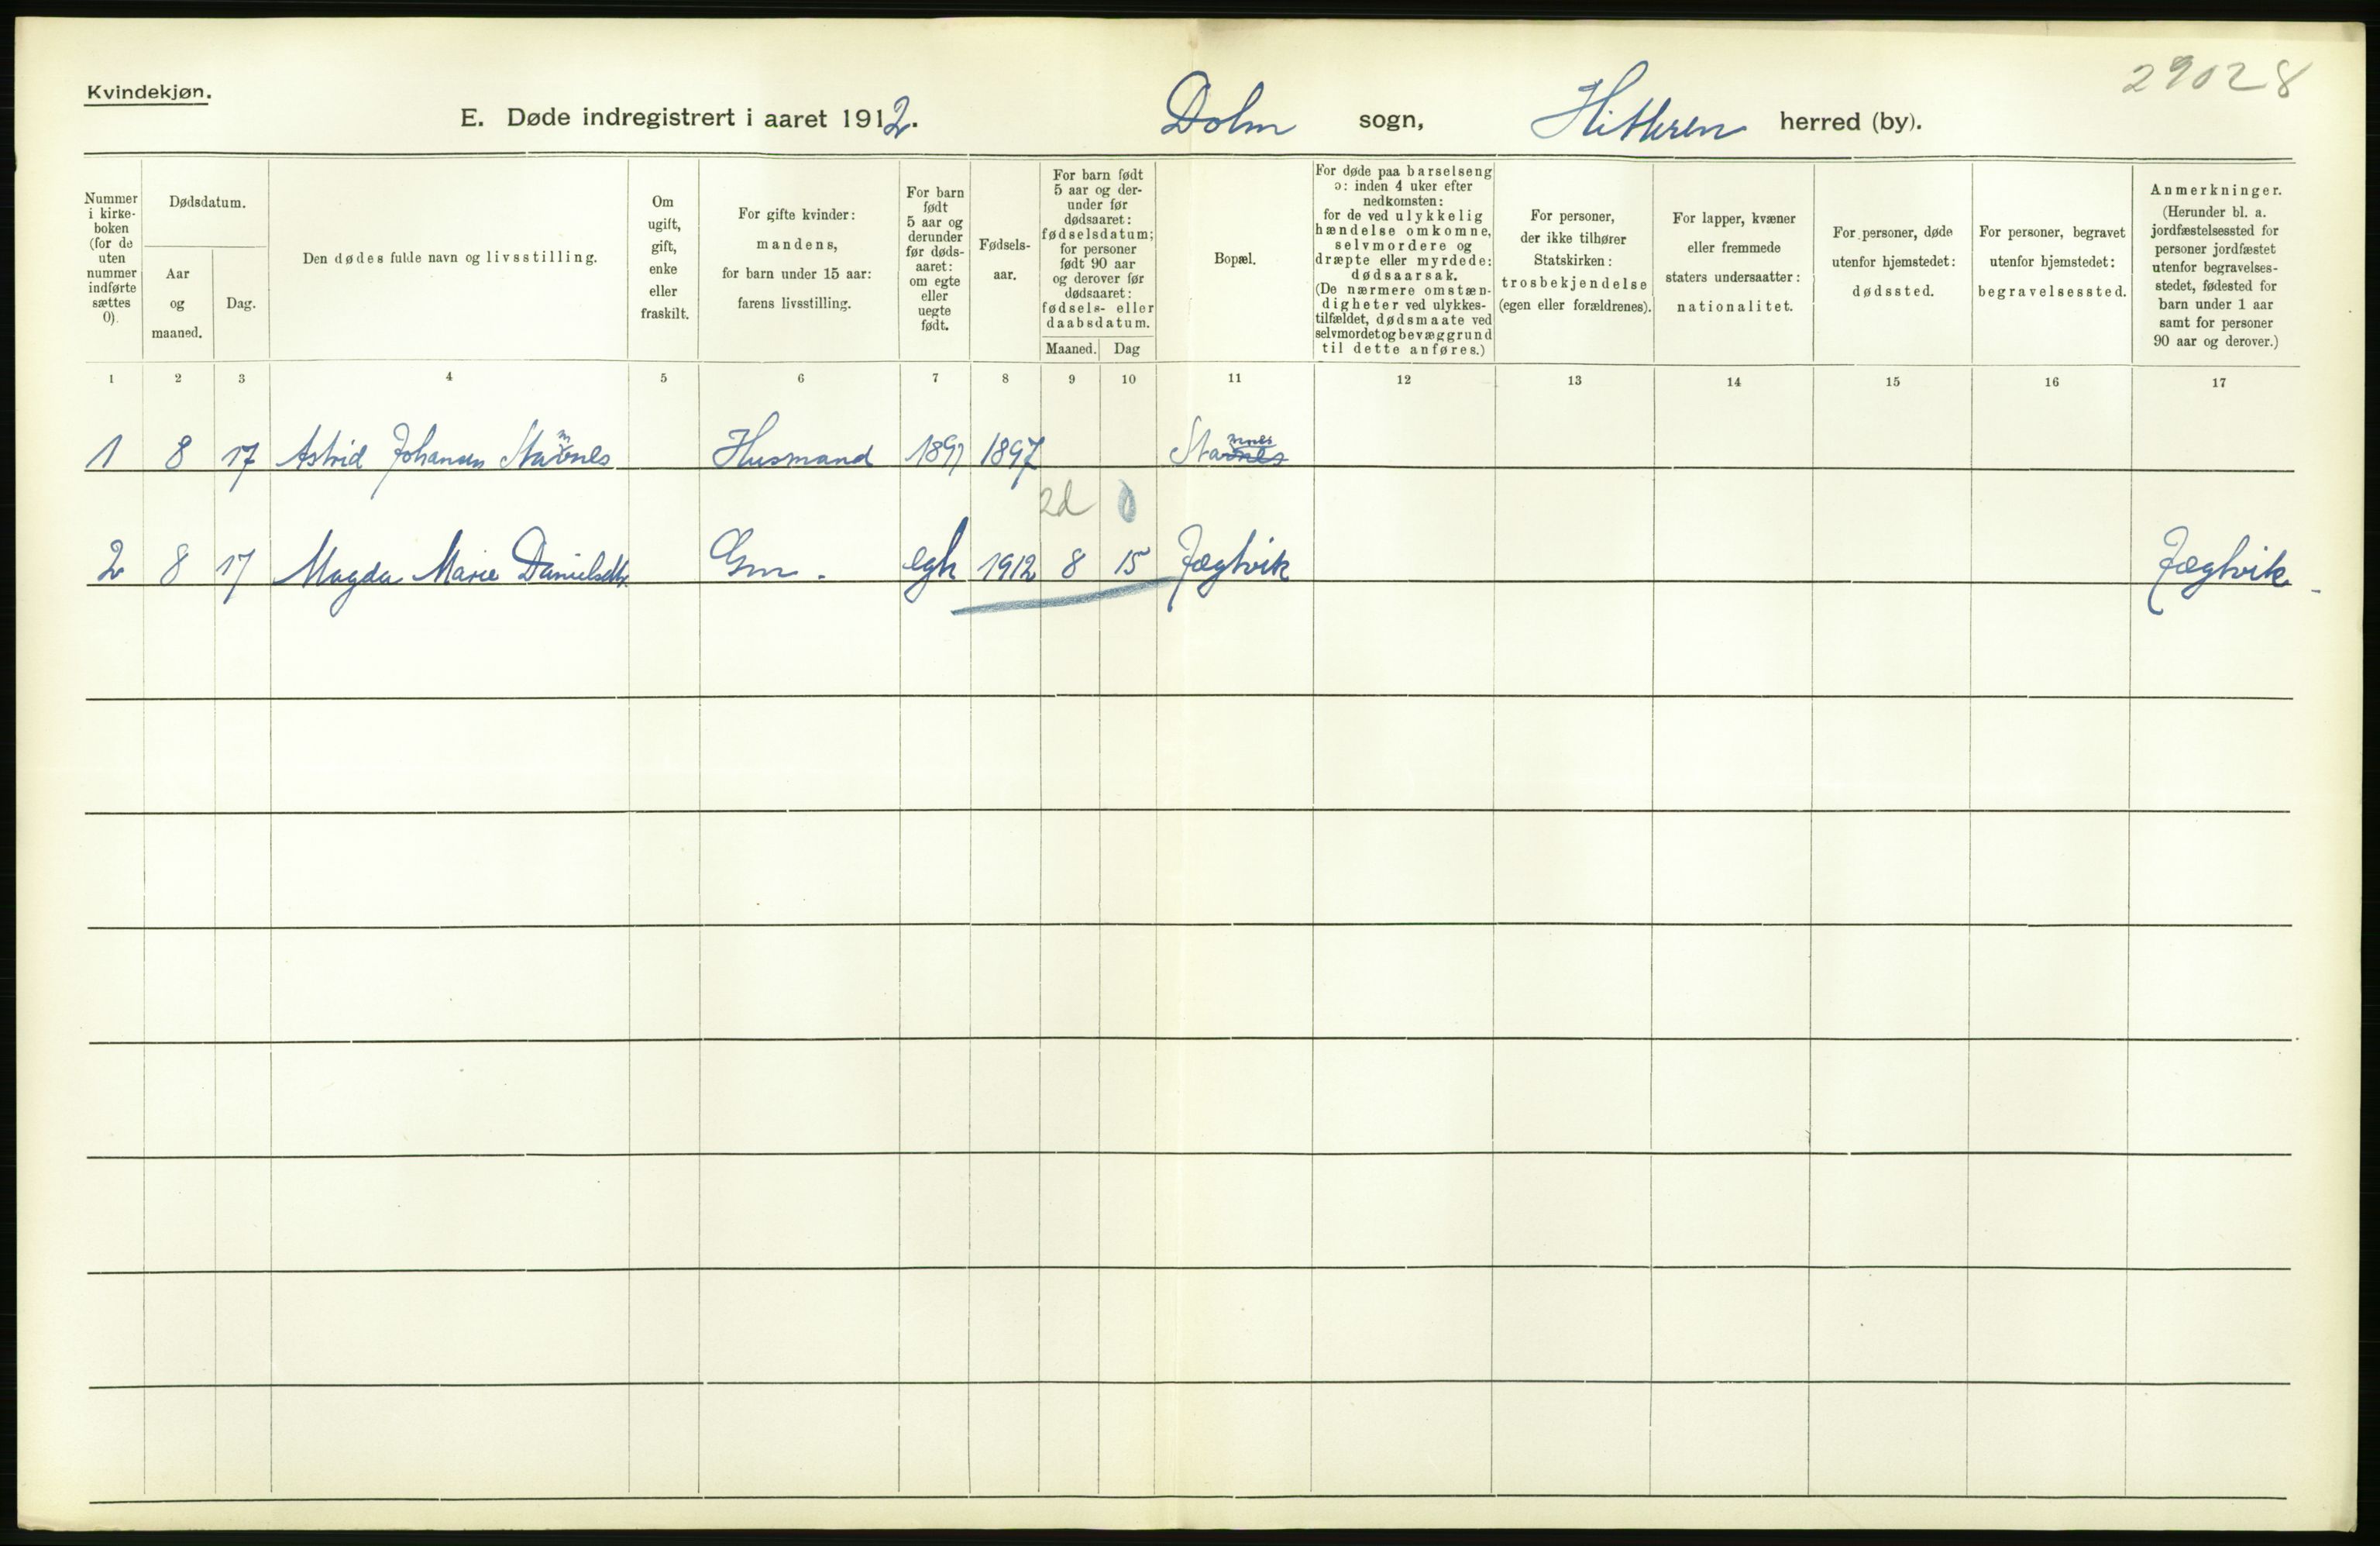 29028
Kvindekjøn.
E. Døde indregistrert i aaret 1912. Dolm sogn, Hitteren herred (by).
Nummer i kirkeboken (for de uten nummer indførte sættes 0).
Dødsdatum.
Aar og maaned.
Dag.
Den dødes fulde navn og livsstilling.
Om ugift, gift, enke eller fraskilt.
For gifte kvinder: mandens, for barn under 15 aar: farens livsstilling.
For barn født 5 aar og derunder før dødsaaret: om egte eller uegte født.
Fødselsaar.
For barn født 5 aar og derunder før dødsaaret: fødselsdatum; for personer født 90 aar og derover før dødsaaret: fødsels- eller daabsdatum.
Maaned. Dag
Bopæl.
For døde paa barselseng ɔ: inden 4 uker efter nedkomsten: for de ved ulykkelig hændelse omkomne, selvmordere og dræpte eller myrdede: dødsaarsak. (De nærmere omstændigheter ved ulykkestilfældet, dødsmaate ved selvmordet og bevæggrund til dette anføres.)
For personer, der ikke tilhører Statskirken: trosbekjendelse (egen eller forældrenes).
For lapper, kvæner eller fremmede staters undersaatter: nationalitet.
For personer, døde utenfor hjemstedet: dødssted.
For personer, begravet utenfor hjemstedet: begravelsessted.
Anmerkninger. (Herunder bl. a. jordfæstelsessted for personer jordfæstet utenfor begravelsesstedet, fødested for barn under 1 aar samt for personer 90 aar og derover.)
1 2 3 4 5 6 7 8 9 10 11 12 13 14 15 16 17
1 8 17 Astrid Johansen Stamnes Husmand 1897 1897 Stamnes
2d 0
2 8 17 Magda Marie Danielsdtr. Gm. egte 1912 8 15 Jægtvik Jægtvik